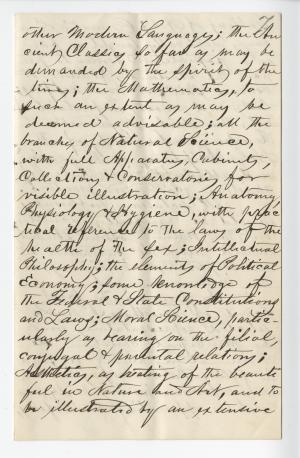 7
other Modern Languages; the An-
cient Classics so far as may be
demanded by the spirit of the
times; the Mathematics, to
such an extent as may be
deemed advisable; all the
branches of Natural Science,
with full Apparatus, Cabinets,
Collections & Conservatories for
visible illustration; Anatomy,
Physiology & Hygiene, with prac-
tical reference to the laws of the
health of the sex; Intellectual
Philosophy; the elements of Political
Economy; some knowledge of
the Federal & State Constitutions
and Laws; Moral Science, partic-
ularly as bearing on the filial,
conjugal & parental relations;
Aesthetics, as treating of the beauti-
ful in Nature and Art, and to
be illustrated by an extensive